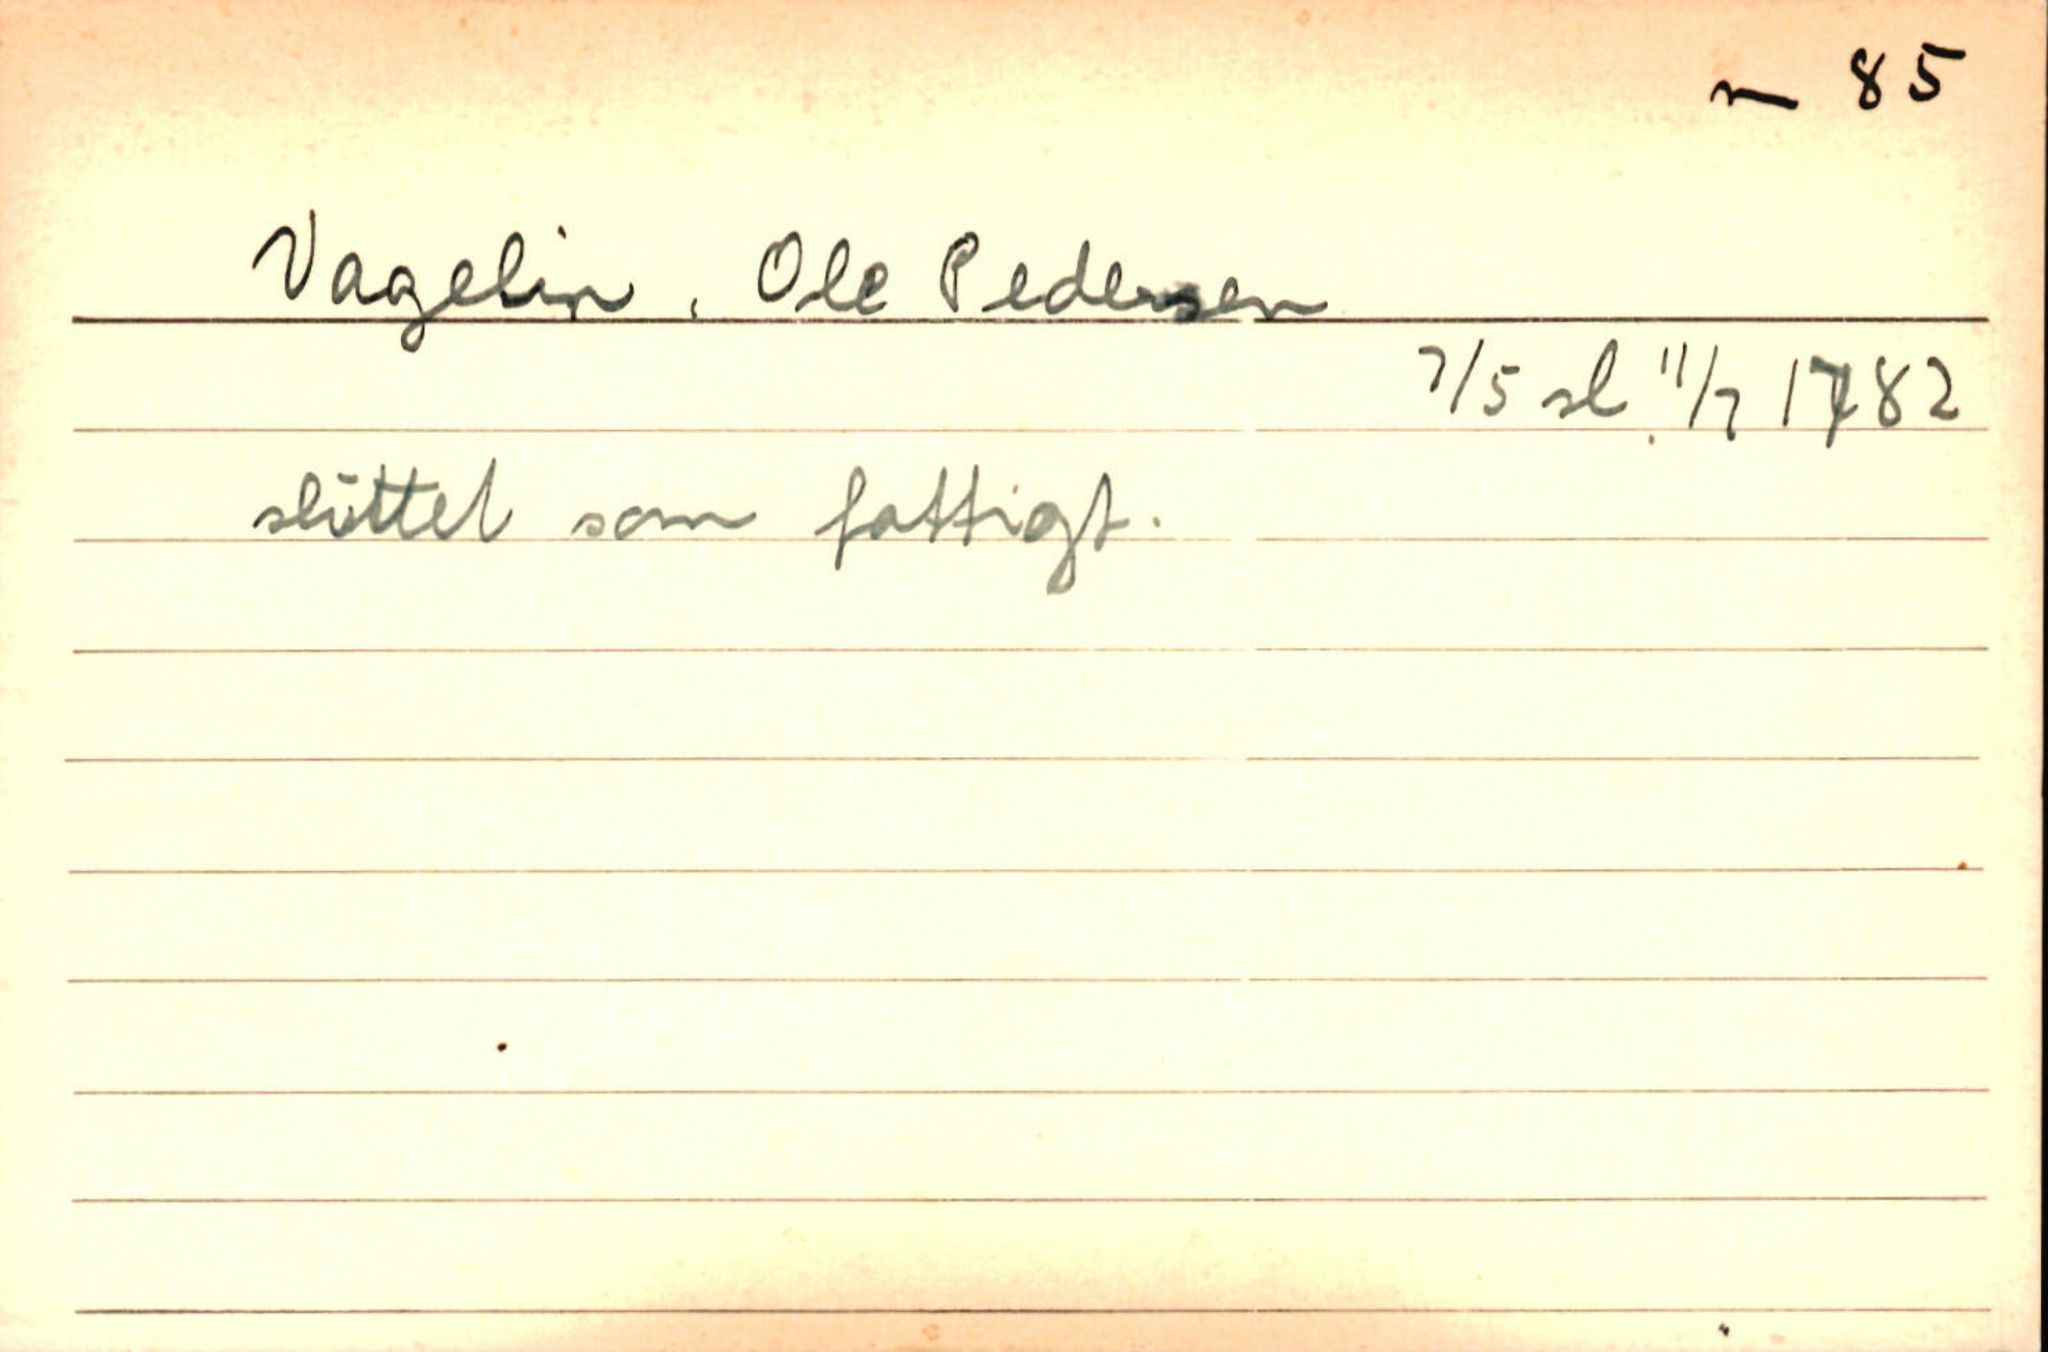 m 85
Vagelin, Ole Pedersen
7/5 sl. 11/7 1782
slüttet som fattigt.